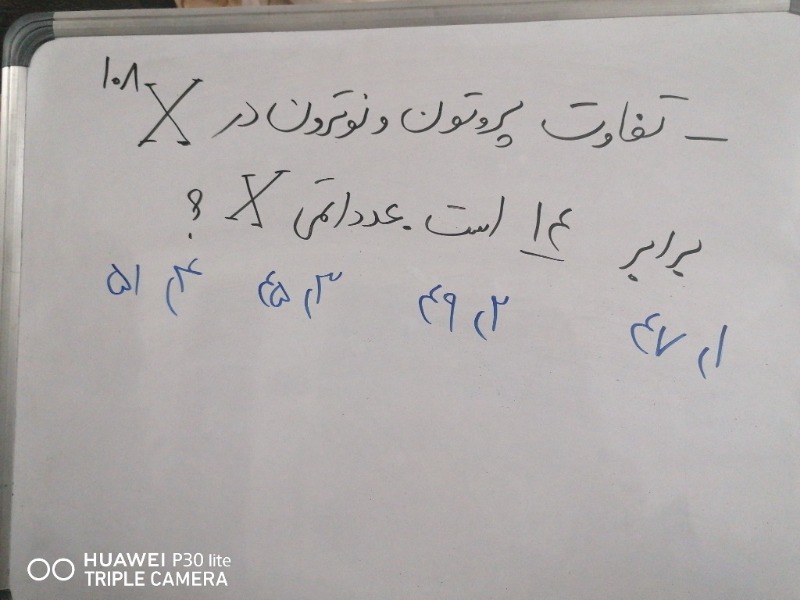 - تفاوت پروتون و نوترون در ¹⁰⁸X
برابر ۱۴ است. عدد اتمی X ؟
۱) ۴۷ ۲) ۴۹ ۳) ۴۵ ۴) ۵۱
HUAWEI P30 lite
TRIPLE CAMERA